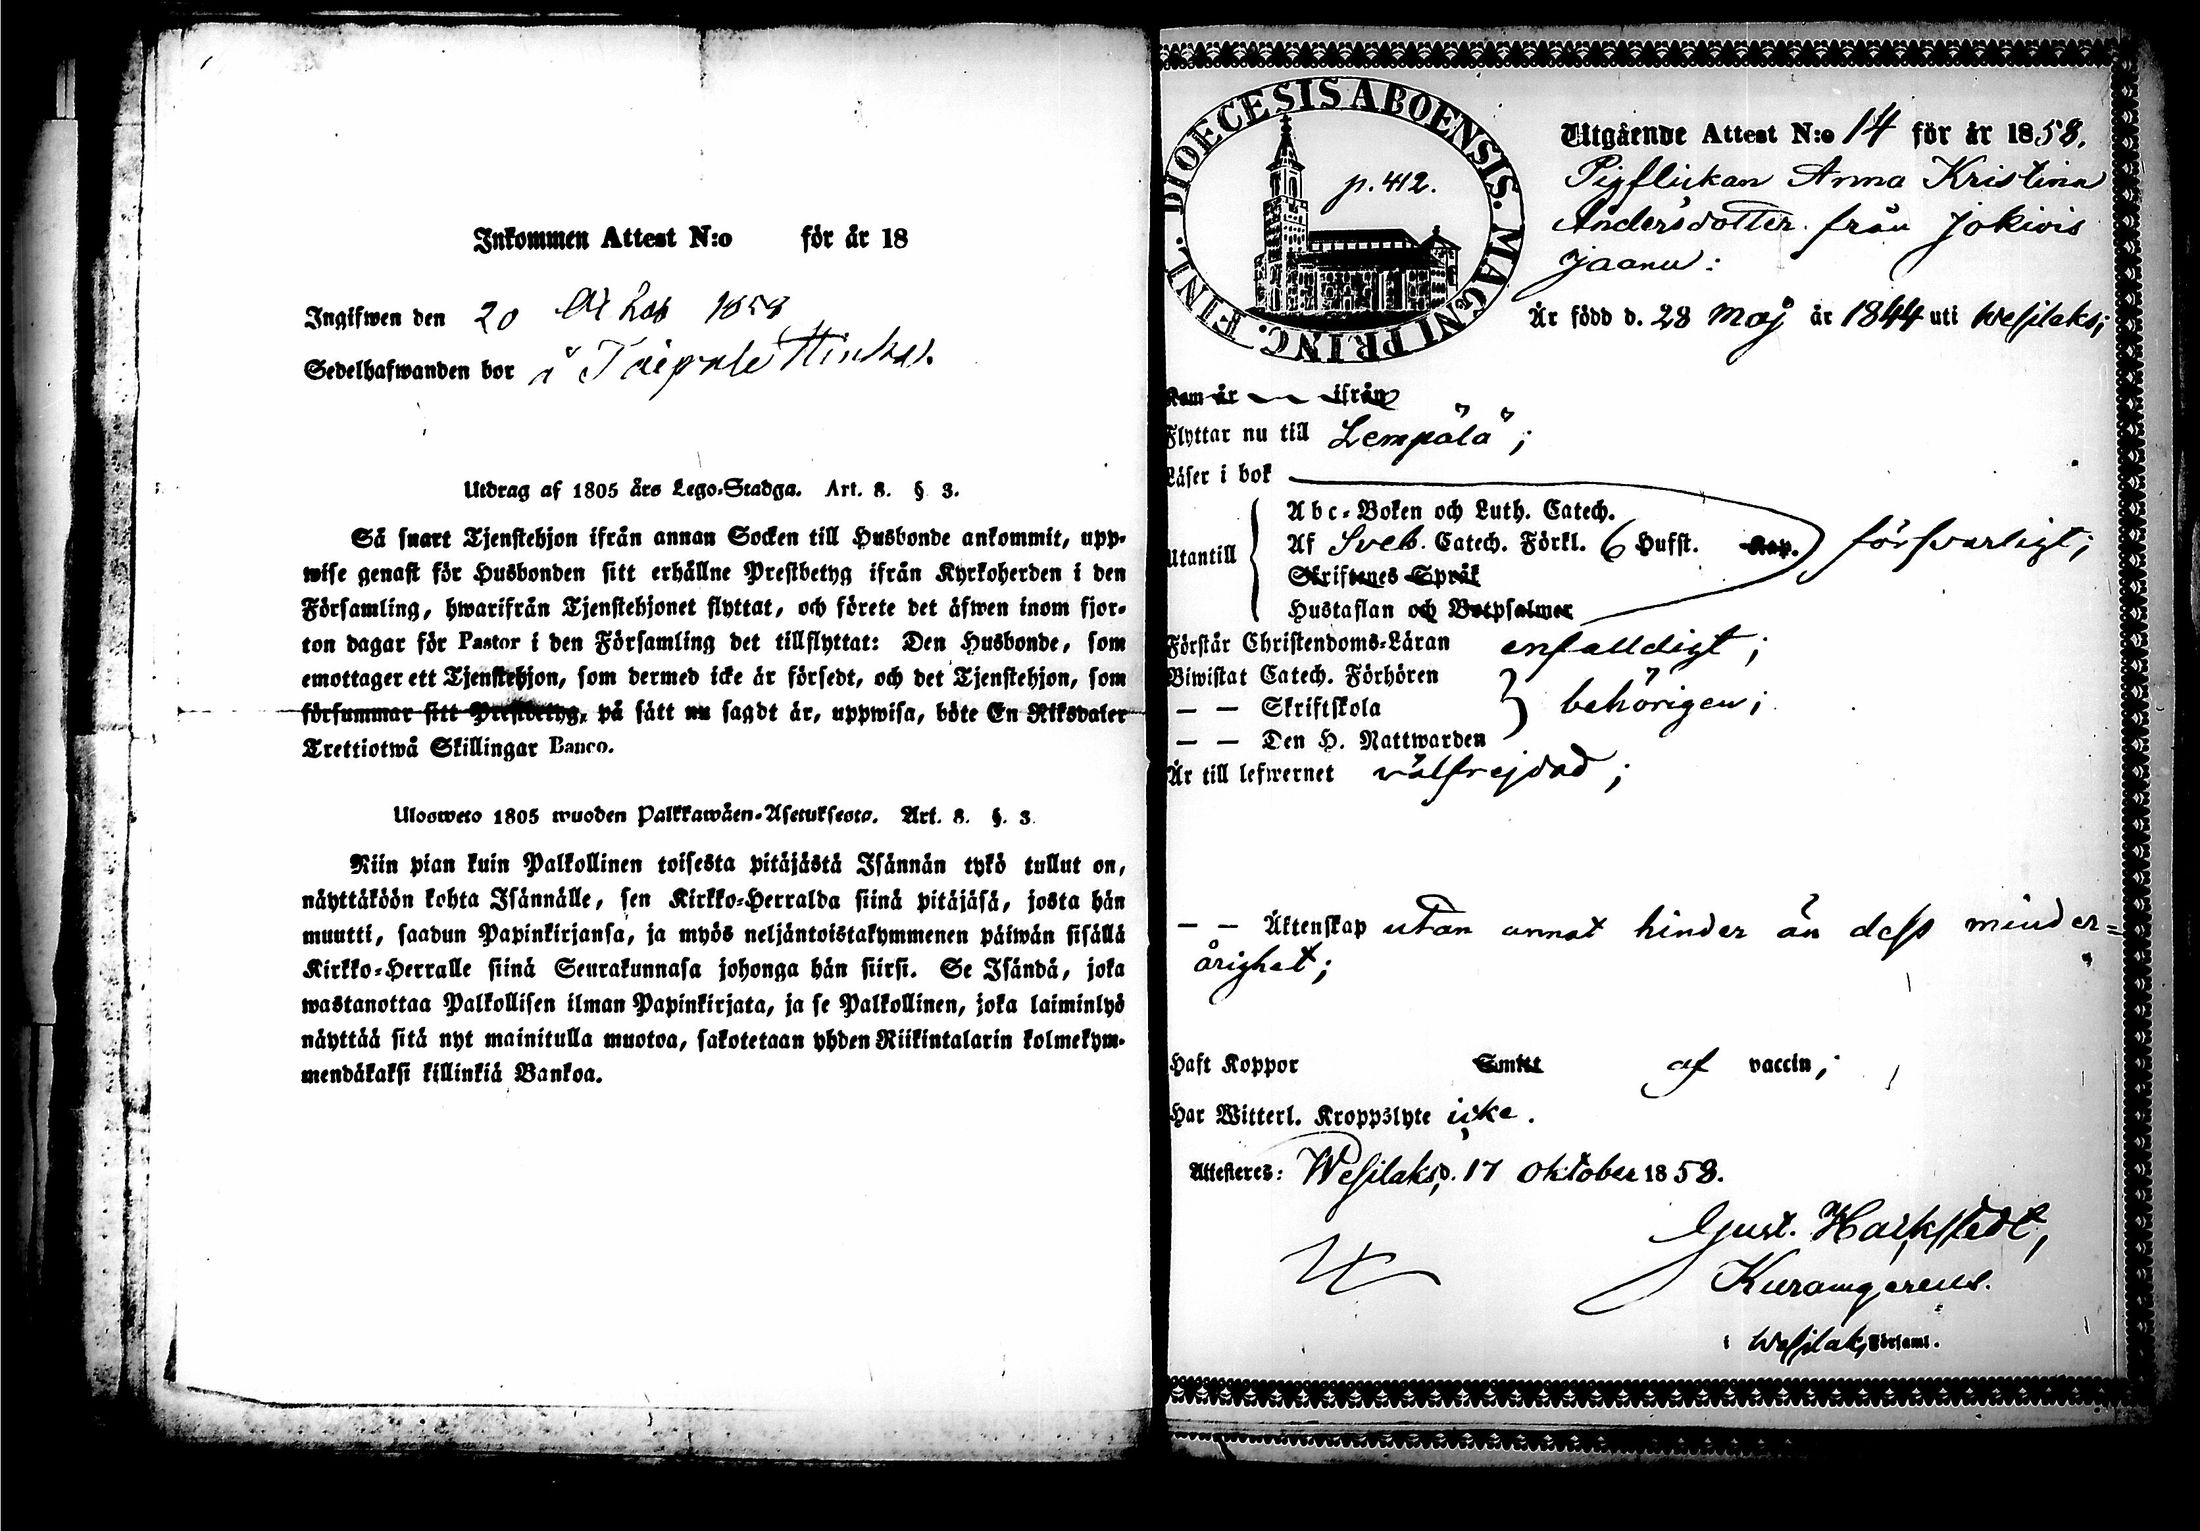 Inkommen Attest N:o för år 18
Ingifwen den 20 1858
Sedelhafwanden bor å Taipale
Utdrag af 1805 års Lego-Stadga. Art. 8. § 3.
Så snart Tjenstehjon ifrån annan Socken till Husbonde ankommit, upp-
wise genast för Husbonden sitt erhållne Prestbetyg ifrån Kyrkoherden i den
Församling, hwarifrån Tjenstehjonet flyttat, och förete det äfwen inom fjor-
ton dagar för Pastor i den Församling det tillflyttat: Den Husbonde, som
emottager ett Tjenstehjon, som dermed icke är försedt, och det Tjenstehjon, som
försummar sitt Prestbetyg, på sätt nu sagdt är, uppwisa, böte En Riksdaler
Trettiotwå Skillingar Banco.
Ulosweto 1805 wuoden Palkkawäen-Asetuksesta. Art. 8. §. 3.
Niin pian kuin Palkollinen toisesta pitäjästä Isännän tykö tullut on,
näyttäköön kohta Isännälle, sen Kirkko-Herralda siinä pitäjäsä, josta hän
muutti, saadun Papinkirjansa, ja myös neljäntoistakymmenen päiwän sisällä
Kirkko-Herralle siinä Seurakunnasa johonga hän siirsi. Se Isändä, joka
wastanottaa Palkollisen ilman Papinkirjata, ja se Palkollinen, joka laiminlyö
näyttää sitä nyt mainitulla muotoa, sakotetaan yhden Riikintalarin kolmekym-
mendäkaksi killinkiä Bankoa.
DIOECESIS ABOENSIS. MAGNI PRINC. FINL.
p. 412.
Utgående Attest N:o 14 för år 1858.
Pigflickan Anna Kristina
Andersdotter från Jokivis
Jaanu:
Är född d. 28 Maj år 1844 uti Wesilaks;
Kom år ifrån
Flyttar nu till Lempälä;
Läser i bok
Abc-Boken och Luth. Catech.
Utantill Af Sveb. Catech. Förkl. 6 Hufst. Kap. försvarligt;
Skriftenes Språk
Hustaflan och Botpsalmer
Förstår Christendoms-Läran enfalldigt;
Biwistat Catech. Förhören
— — Skriftskola behörigen;
— — Den H. Nattwarden
Är till lefwernet välfrejdad;
— — Äktenskap utan annat hinder än dess minder-
årighet;
Haft Koppor Smitt af vaccin;
Har Witterl. Kroppslyte icke.
Attesteras: Wesilaks, d. 17 Oktober 1858.
Gust.
i Wesilaks Församl.